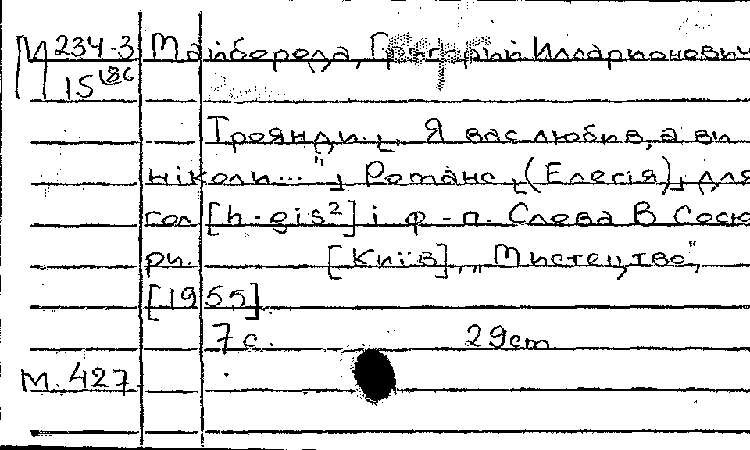 М 234-3 Майборода, Григорій Илларионович
15
Троянди. „Я вас любив, а ви
ніколи..." Романс (Елегія) для
гол [h-gis²] і ф-п. Слова В Сосю
ри. [Київ], „Мистецтво",
[1955]
7 с. 29cm
М. 427